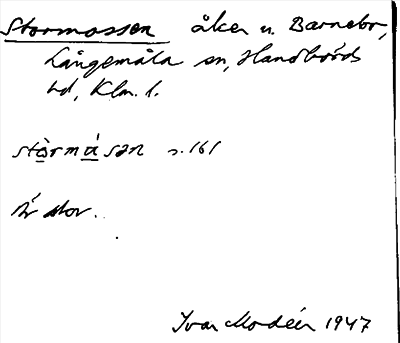 Stormossen åker u. Barnebo,
Långemåla sn, Handbörds
hd, Klm. l.
stòrmásən s. 161
Är stor.
Ivar Modéer 1947